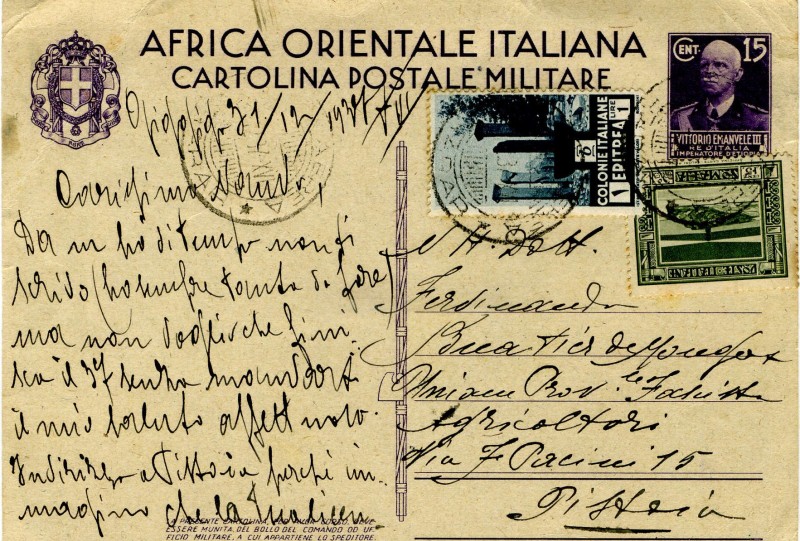 AFRICA ORIENTALE ITALIANA
CARTOLINA POSTALE MILITARE
CENT. 15
VITTORIO EMANVELE III
RE D'ITALIA
IMPERATORE D'ETIOPIA
COLONIE ITALIANE
1 ERITREA LIRE 1
31/12/1937 XVI
Carissimo
Da un po di tempo non ti
scrivo (ho sempre tanto da fare)
ma non voglio che fini-
sca il 37 senza mandarti
il mio saluto affettuoso.
Indirizzo a Pistoia perché im-
magino che la
N H Dott.
Ferdinando
Unione Prov.le Fascista
Agricoltori
Via F Pacini 15
Pistoia
LA PRESENTE CARTOLINA, PER AVER CORSO, DEVE
ESSERE MUNITA DEL BOLLO DEL COMANDO OD UF-
FICIO MILITARE, A CUI APPARTIENE LO SPEDITORE.